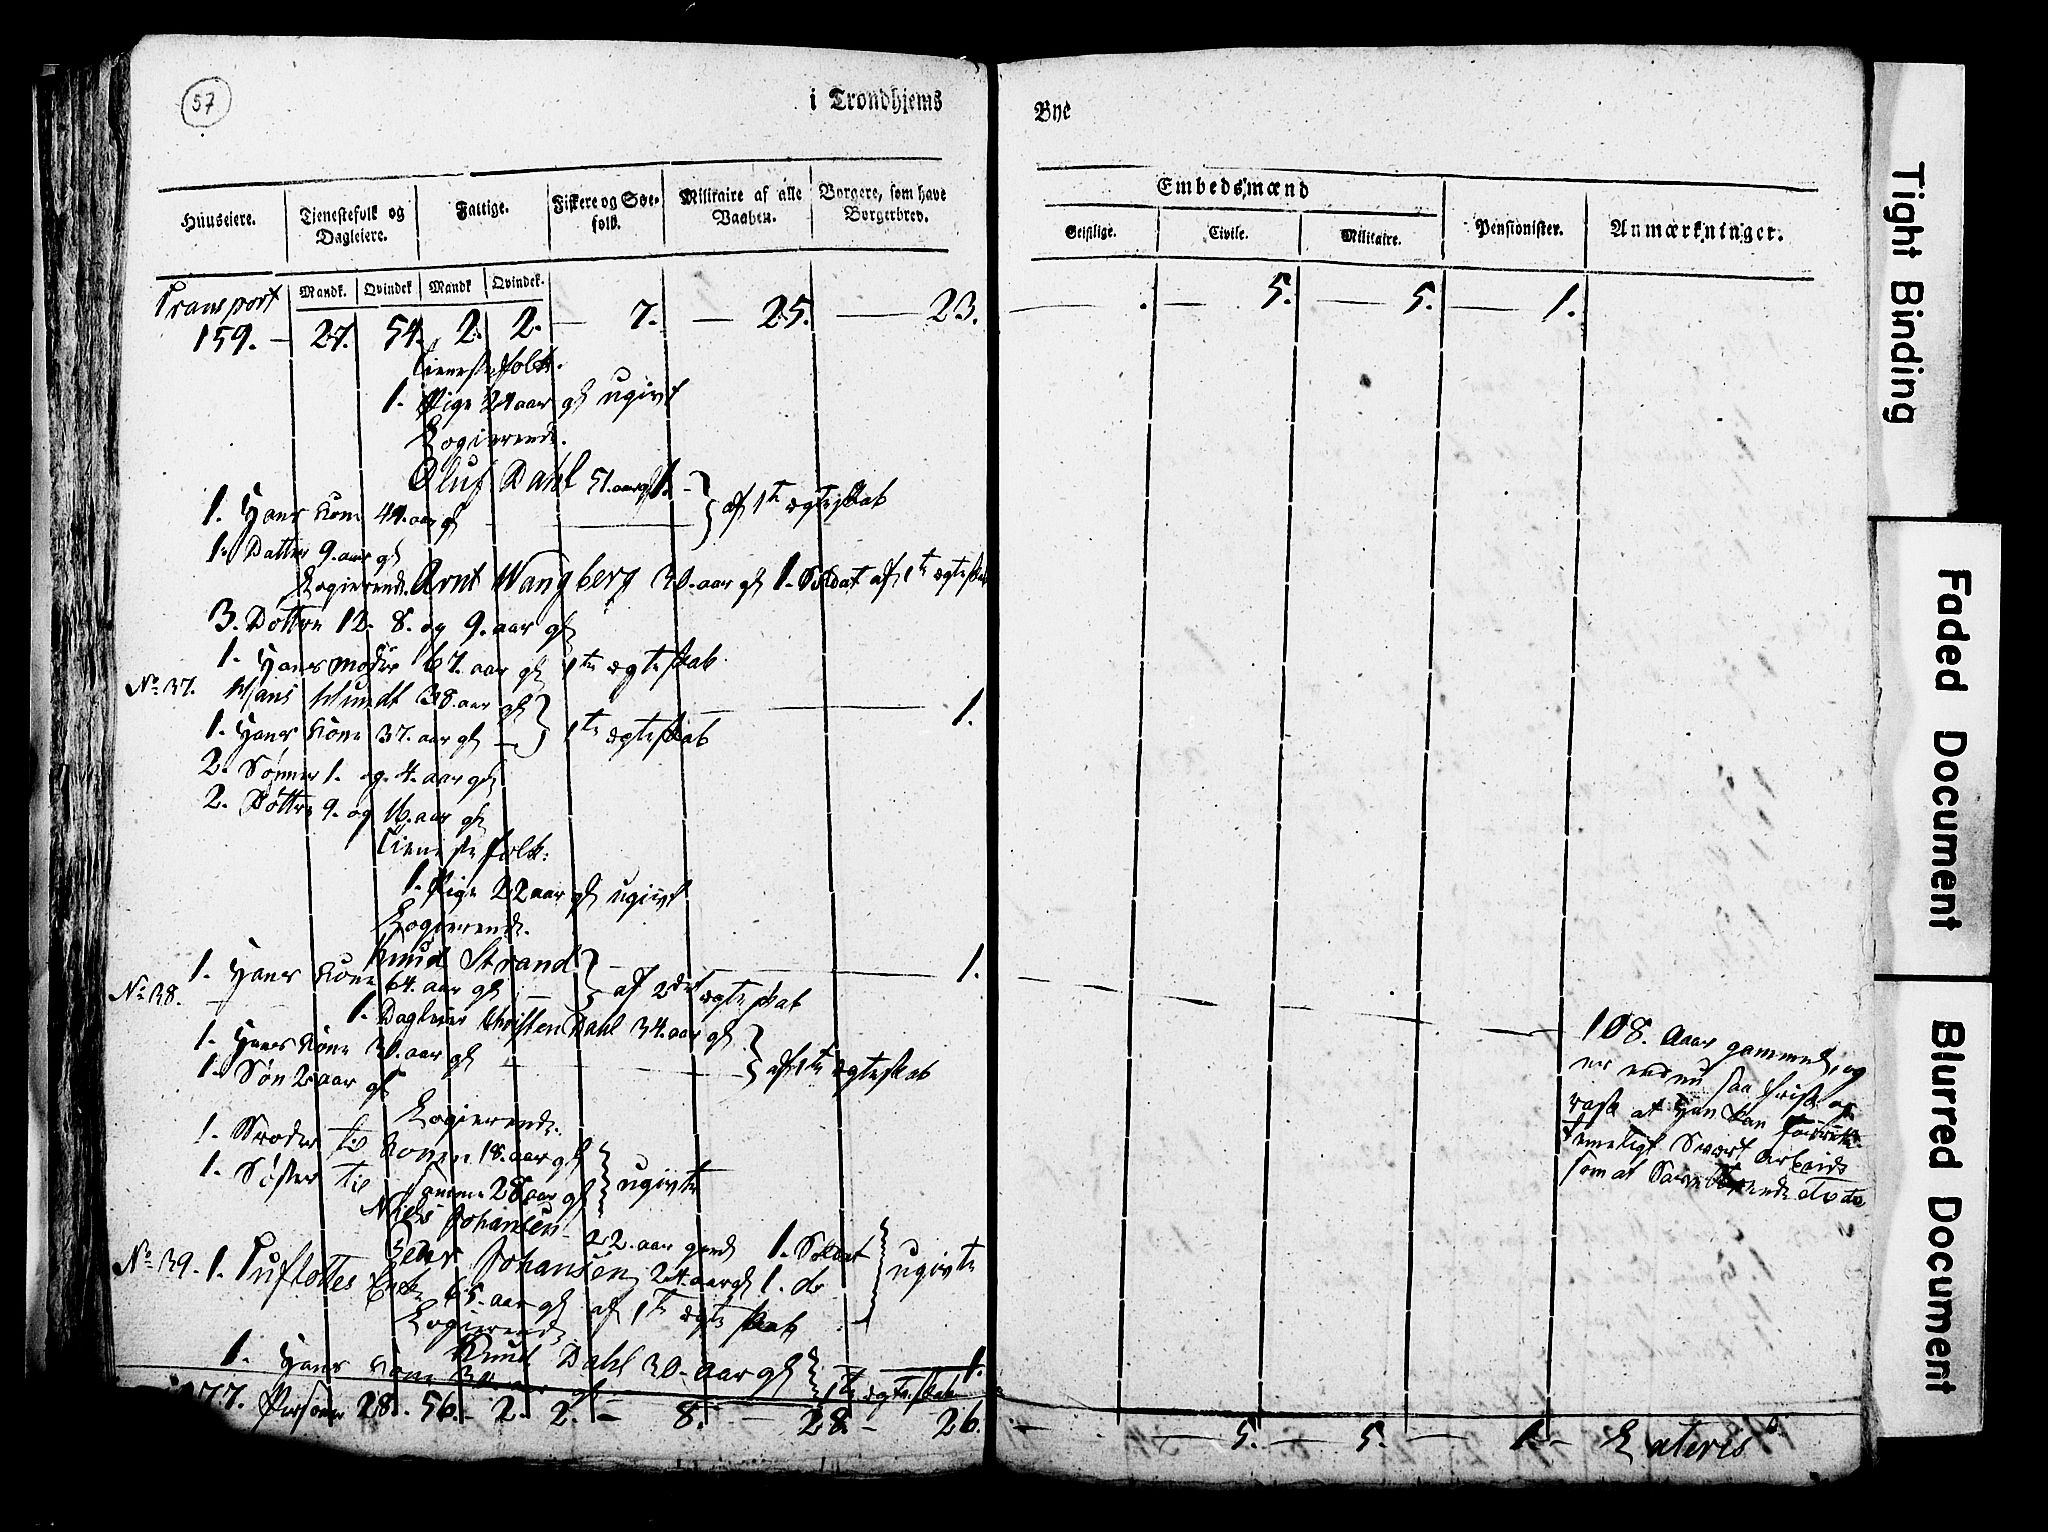 57
i Trondhjems
Bye
Huuseiere. Tjenestefolk og Dagleiere. Fattige. Fiskere og Søefolk. Militaire af alle Vaaben. Borgere, som have Borgerbrev.
Embedsmænd
Geistlige. Civile. Militaire. Pensionister. Anmærkninger.
Mandk. Qvindek Mandk Qvindek.
Transport
159. 27. 54. 2. 2. 7. 25. 23. 5. 5. 1.
Tienestefolk.
1. Pige 24 aar gl ugivt
Logierende.
Oluf Dahl 51. aar gl 1.
1. Hans Kone 44. aar gl af 1te ægteskab
1. Datter 9. aar gl
Logierende. Arnt Wangberg 30. aar gl 1. Soldat af 1te ægteskab
3. Dottre 12. 8. og 9. aar gl
1. Hans moder 67. aar gl 1te ægteskab
No 37. Hans Mundt 38. aar gl 1.
1. Hans Kone 37. aar gl 1te ægteskab
2. Sønner 1. og 4. aar gl
2. Døttre 9. og 16. aar gl
Tienestefolk:
1. Pige 22 aar gl ugivt
Logierende.
Knud Strand 1.
1. Hans Kone 64. aar gl af 2det ægteskab
No 38. 1. Dagleier Christen Dahl 34. aar gl
1. Hans Kone 30. aar gl af 1te ægteskab
1. Søn 2 aar gl
Logierende.
1. Broder til Konen 18. aar gl
1. Søster til samme 28 aar gl ugivte
Niels Johansen 22. aar gml 1. Soldat
Peder Johansen 24. aar gl 1. do ugivte
No 39. 1. Tufsottes Enke 65. aar gl af 1te ægteskab
Logierende
Knud Dahl 30. aar gl 1.
1. Hans Kone 30 aar gl 1te ægteskab
177. Personer 28. 56. 2. 2. 8. 28. 26. 5. 5. 1. Lateris
108. Aar gammel, og
er endnu saa frisk og
rask at Han kan forrette
temeligt Svært Arbeide
som at Save Brænde etc.
Tight Binding
Faded Document
Blurred Document